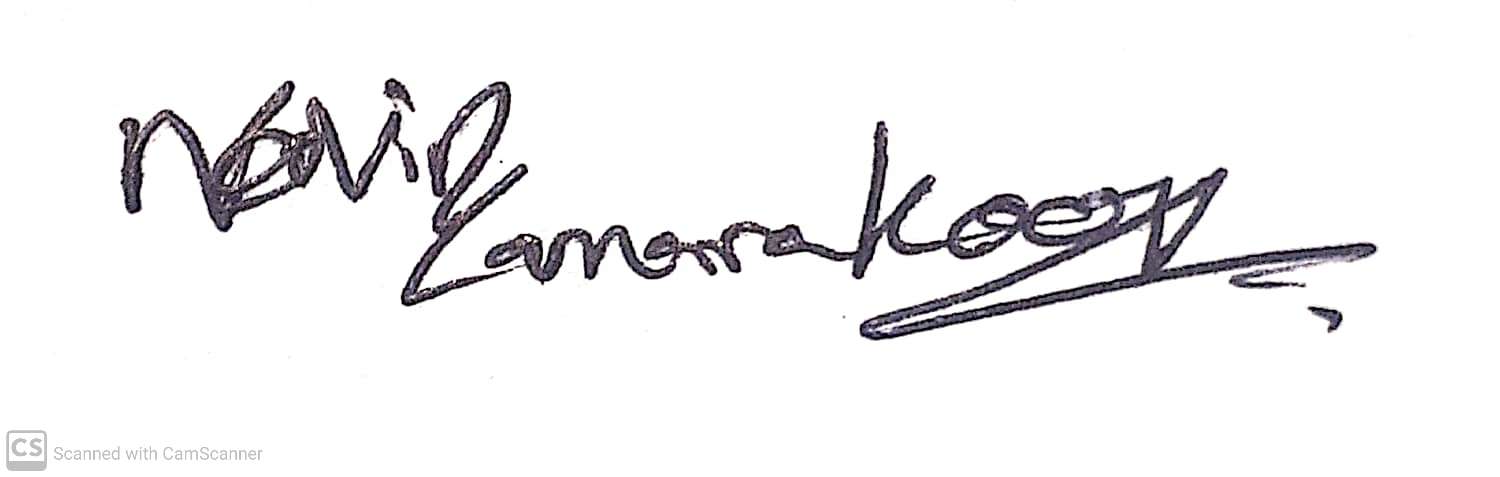 Samarakoon
CS Scanned with CamScanner